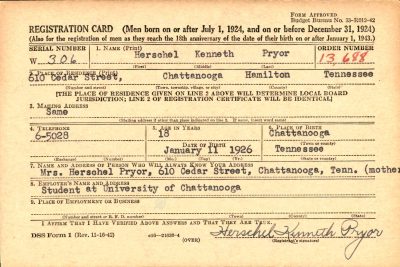 Form Approved
Budget Bureau No. 33-R012-42
REGISTRATION CARD (Men born on or after July 1, 1924, and on or before December 31, 1924)
(Also for the registration of men as they reach the 18th anniversary of the date of their birth on or after January 1, 1943.)
SERIAL NUMBER 1. NAME (Print) ORDER NUMBER
W 306. Herschel Kenneth Pryor 13,688
(First) (Middle) (Last)
2. PLACE OF RESIDENCE (Print)
610 Cedar Street, Chattanooga Hamilton Tennessee
(Number and street) (Town, township, village, or city) (County) (State)
[THE PLACE OF RESIDENCE GIVEN ON LINE 2 ABOVE WILL DETERMINE LOCAL BOARD
JURISDICTION; LINE 2 OF REGISTRATION CERTIFICATE WILL BE IDENTICAL]
3. MAILING ADDRESS
Same
[Mailing address if other than place indicated on line 2. If same, insert word same]
4. TELEPHONE 5. AGE IN YEARS 6. PLACE OF BIRTH
6-5028 18 Chattanooga
DATE OF BIRTH
January 11 1926 Tennessee
(Exchange) (Number) (Mo.) (Day) (Yr.) (State or country)
7. NAME AND ADDRESS OF PERSON WHO WILL ALWAYS KNOW YOUR ADDRESS
Mrs. Herschel Pryor, 610 Cedar Street, Chattanooga, Tenn. (mother
8. EMPLOYER'S NAME AND ADDRESS
Student at University of Chattanooga
9. PLACE OF EMPLOYMENT OR BUSINESS
(Number and street or R. F. D. number) (Town) (County) (State)
I AFFIRM THAT I HAVE VERIFIED ABOVE ANSWERS AND THAT THEY ARE TRUE.
DSS Form 1 (Rev. 11-16-42) (OVER) Herschel Kenneth Pryor
(Registrant's signature)